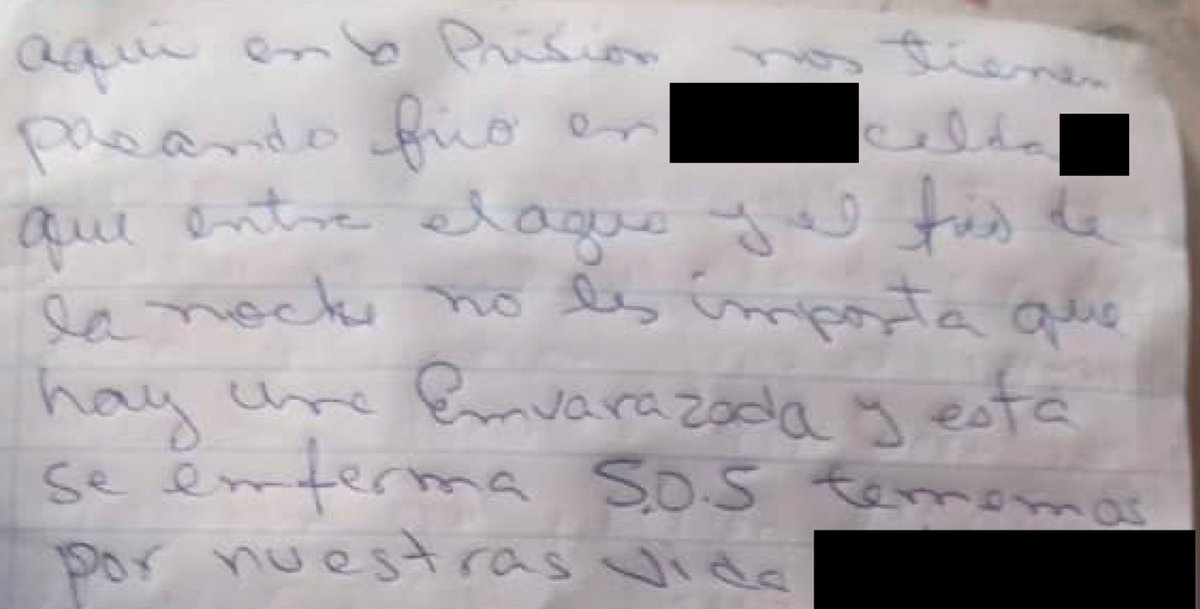 aqui en la Prision nos tienen
pasando frio en celda
que entra el agua y el frio de
la noche no les importa que
hay una Emvarazada y esta
se emferma S.O.S tememos
por nuestras vida